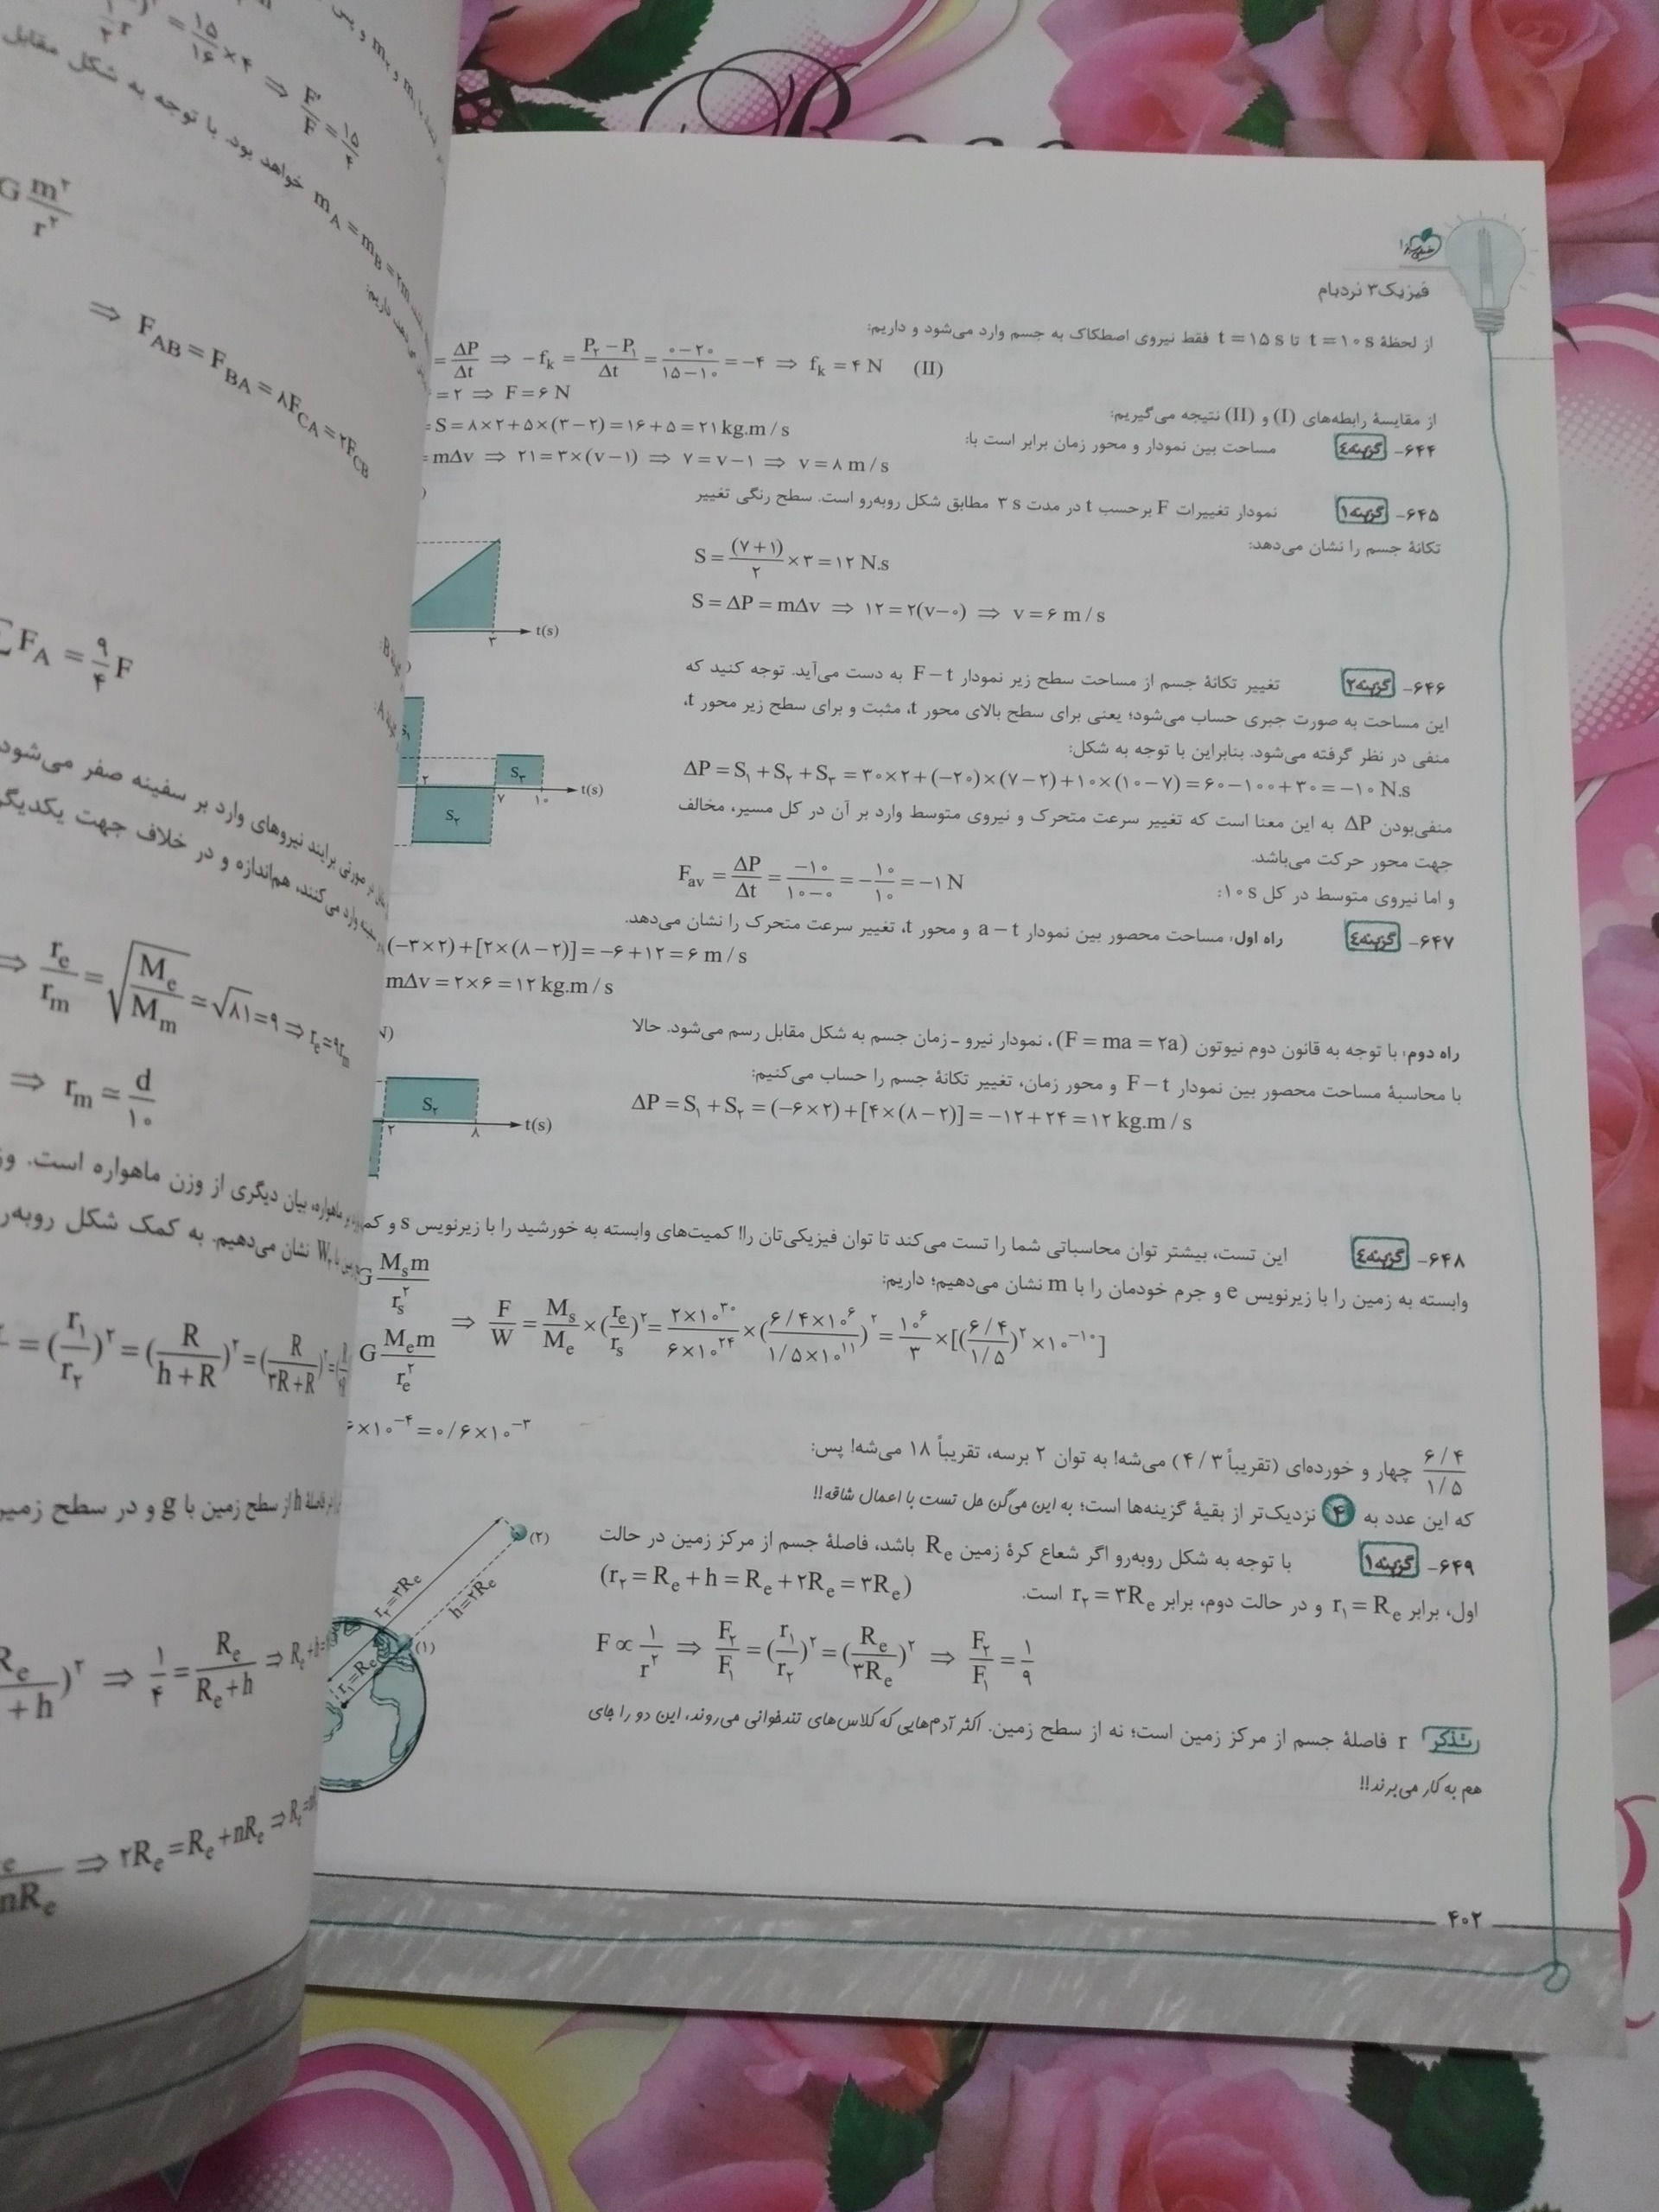 فیزیک۳ نردبام
از لحظهٔ t = ۱۰ s تا t = ۱۵ s فقط نیروی اصطکاک به جسم وارد می‌شود و داریم:
= ΔP/Δt ⇒ −fₖ = (P₂ − P₁)/Δt = (۰−۲۰)/(۱۵−۱۰) = −۴ ⇒ fₖ = ۴ N (II)
از مقایسهٔ رابطه‌های (I) و (II) نتیجه می‌گیریم:
= ۲ ⇒ F = ۶ N
۶۴۴- گزینه۴ مساحت بین نمودار و محور زمان برابر است با:
= S = ۸×۲+۵×(۳−۲) = ۱۶+۵ = ۲۱ kg.m/s
= mΔv ⇒ ۲۱ = ۳×(v−۱) ⇒ ۷ = v−۱ ⇒ v = ۸ m/s
۶۴۵- گزینه۱ نمودار تغییرات F برحسب t در مدت ۳ s مطابق شکل روبه‌رو است. سطح رنگی تغییر
تکانهٔ جسم را نشان می‌دهد:
S = (۷+۱)/۲ × ۳ = ۱۲ N.s
S = ΔP = mΔv ⇒ ۱۲ = ۲(v−۰) ⇒ v = ۶ m/s
۳ t(s)
۶۴۶- گزینه۲ تغییر تکانهٔ جسم از مساحت سطح زیر نمودار F − t به دست می‌آید. توجه کنید که
این مساحت به صورت جبری حساب می‌شود؛ یعنی برای سطح بالای محور t، مثبت و برای سطح زیر محور t،
منفی در نظر گرفته می‌شود. بنابراین با توجه به شکل:
ΔP = S₁ + S₂ + S₃ = ۳۰×۲+(−۲۰)×(۷−۲)+۱۰×(۱۰−۷) = ۶۰−۱۰۰+۳۰ = −۱۰ N.s
S₁ S₂ S₃ ۲ ۷ ۱۰ t(s)
منفی‌بودن ΔP به این معنا است که تغییر سرعت متحرک و نیروی متوسط وارد بر آن در کل مسیر، مخالف
جهت محور حرکت می‌باشد.
و اما نیروی متوسط در کل ۱۰ s:
F_av = ΔP/Δt = −۱۰/(۱۰−۰) = −۱۰/۱۰ = −۱ N
۶۴۷- گزینه۴ راه اول: مساحت محصور بین نمودار a − t و محور t، تغییر سرعت متحرک را نشان می‌دهد.
(−۳×۲)+[۲×(۸−۲)] = −۶+۱۲ = ۶ m/s
mΔv = ۲×۶ = ۱۲ kg.m/s
راه دوم: با توجه به قانون دوم نیوتون (F = ma = ۲a)، نمودار نیرو ـ زمان جسم به شکل مقابل رسم می‌شود. حالا
با محاسبهٔ مساحت محصور بین نمودار F − t و محور زمان، تغییر تکانهٔ جسم را حساب می‌کنیم:
ΔP = S₁ + S₂ = (−۶×۲)+[۴×(۸−۲)] = −۱۲+۲۴ = ۱۲ kg.m/s
S₂ ۲ ۸ t(s)
۶۴۸- گزینه۴ این تست، بیشتر توان محاسباتی شما را تست می‌کند تا توان فیزیکی‌تان را! کمیت‌های وابسته به خورشید را با زیرنویس s و
وابسته به زمین را با زیرنویس e و جرم خودمان را با m نشان می‌دهیم؛ داریم:
G Mₛm/rₛ²
G Mₑm/rₑ²
⇒ F/W = Mₛ/Mₑ × (rₑ/rₛ)² = (۲×۱۰³⁰)/(۶×۱۰²⁴) × ((۶/۴×۱۰⁶)/(۱/۵×۱۰¹¹))² = ۱۰⁶/۳ × [(۶/۴ / ۱/۵)² × ۱۰⁻¹⁰]
(۶/۴)/(۱/۵) چهار و خورده‌ای (تقریباً ۴/۳) می‌شه! به توان ۲ برسه، تقریباً ۱۸ می‌شه! پس:
۶×۱۰⁻⁴ = ۰/۶×۱۰⁻³
که این عدد به ۴ نزدیک‌تر از بقیهٔ گزینه‌ها است؛ به این می‌گن حل تست با اعمال شاقه!!
۶۴۹- گزینه۱ با توجه به شکل روبه‌رو اگر شعاع کرهٔ زمین Rₑ باشد، فاصلهٔ جسم از مرکز زمین در حالت
اول، برابر r₁ = Rₑ و در حالت دوم، برابر r₂ = ۳Rₑ است. (r₂ = Rₑ + h = Rₑ + ۲Rₑ = ۳Rₑ)
F ∝ ۱/r² ⇒ F₂/F₁ = (r₁/r₂)² = (Rₑ/۳Rₑ)² ⇒ F₂/F₁ = ۱/۹
(۲)
r₂=۳Rₑ
h=۲Rₑ
(۱)
r₁=Rₑ
تذکر r فاصلهٔ جسم از مرکز زمین است؛ نه از سطح زمین. اکثر آدم‌هایی که کلاس‌های تندخوانی می‌روند، این دو را جای
هم به کار می‌برند!!
۴۰۲
= ۱۵/۱۶ × ۴ ⇒ F′/F = ۱۵/۴
خواهد بود. با توجه به شکل مقابل
G m²/r²
⇒ F_AB = F_BA = ۸F_CA = ۲F_CB
∑F_A = ۹/۴ F
برایند نیروهای وارد بر سفینه صفر می‌شود
وارد می‌کنند، هم‌اندازه و در خلاف جهت یکدیگر
⇒ rₑ/rₘ = √(Mₑ/Mₘ) = √۸۱ = ۹ ⇒ rₑ = ۹rₘ
⇒ rₘ = d/۱۰
ماهواره، بیان دیگری از وزن ماهواره است.
نشان می‌دهیم. به کمک شکل
= (r₁/r₂)² = (R/(h+R))² = (R/(۳R+R))²
از سطح زمین با g و در سطح زمین
⇒ ۱/۴ = Rₑ/(Rₑ+h)
⇒ ۲Rₑ = Rₑ + nRₑ